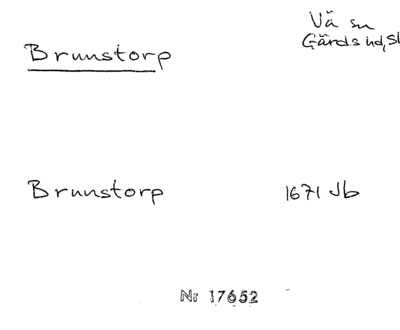 Vä sn
Gärds hd, Sk
Brunstorp
Brunstorp 1671 Jb
Nr 17652